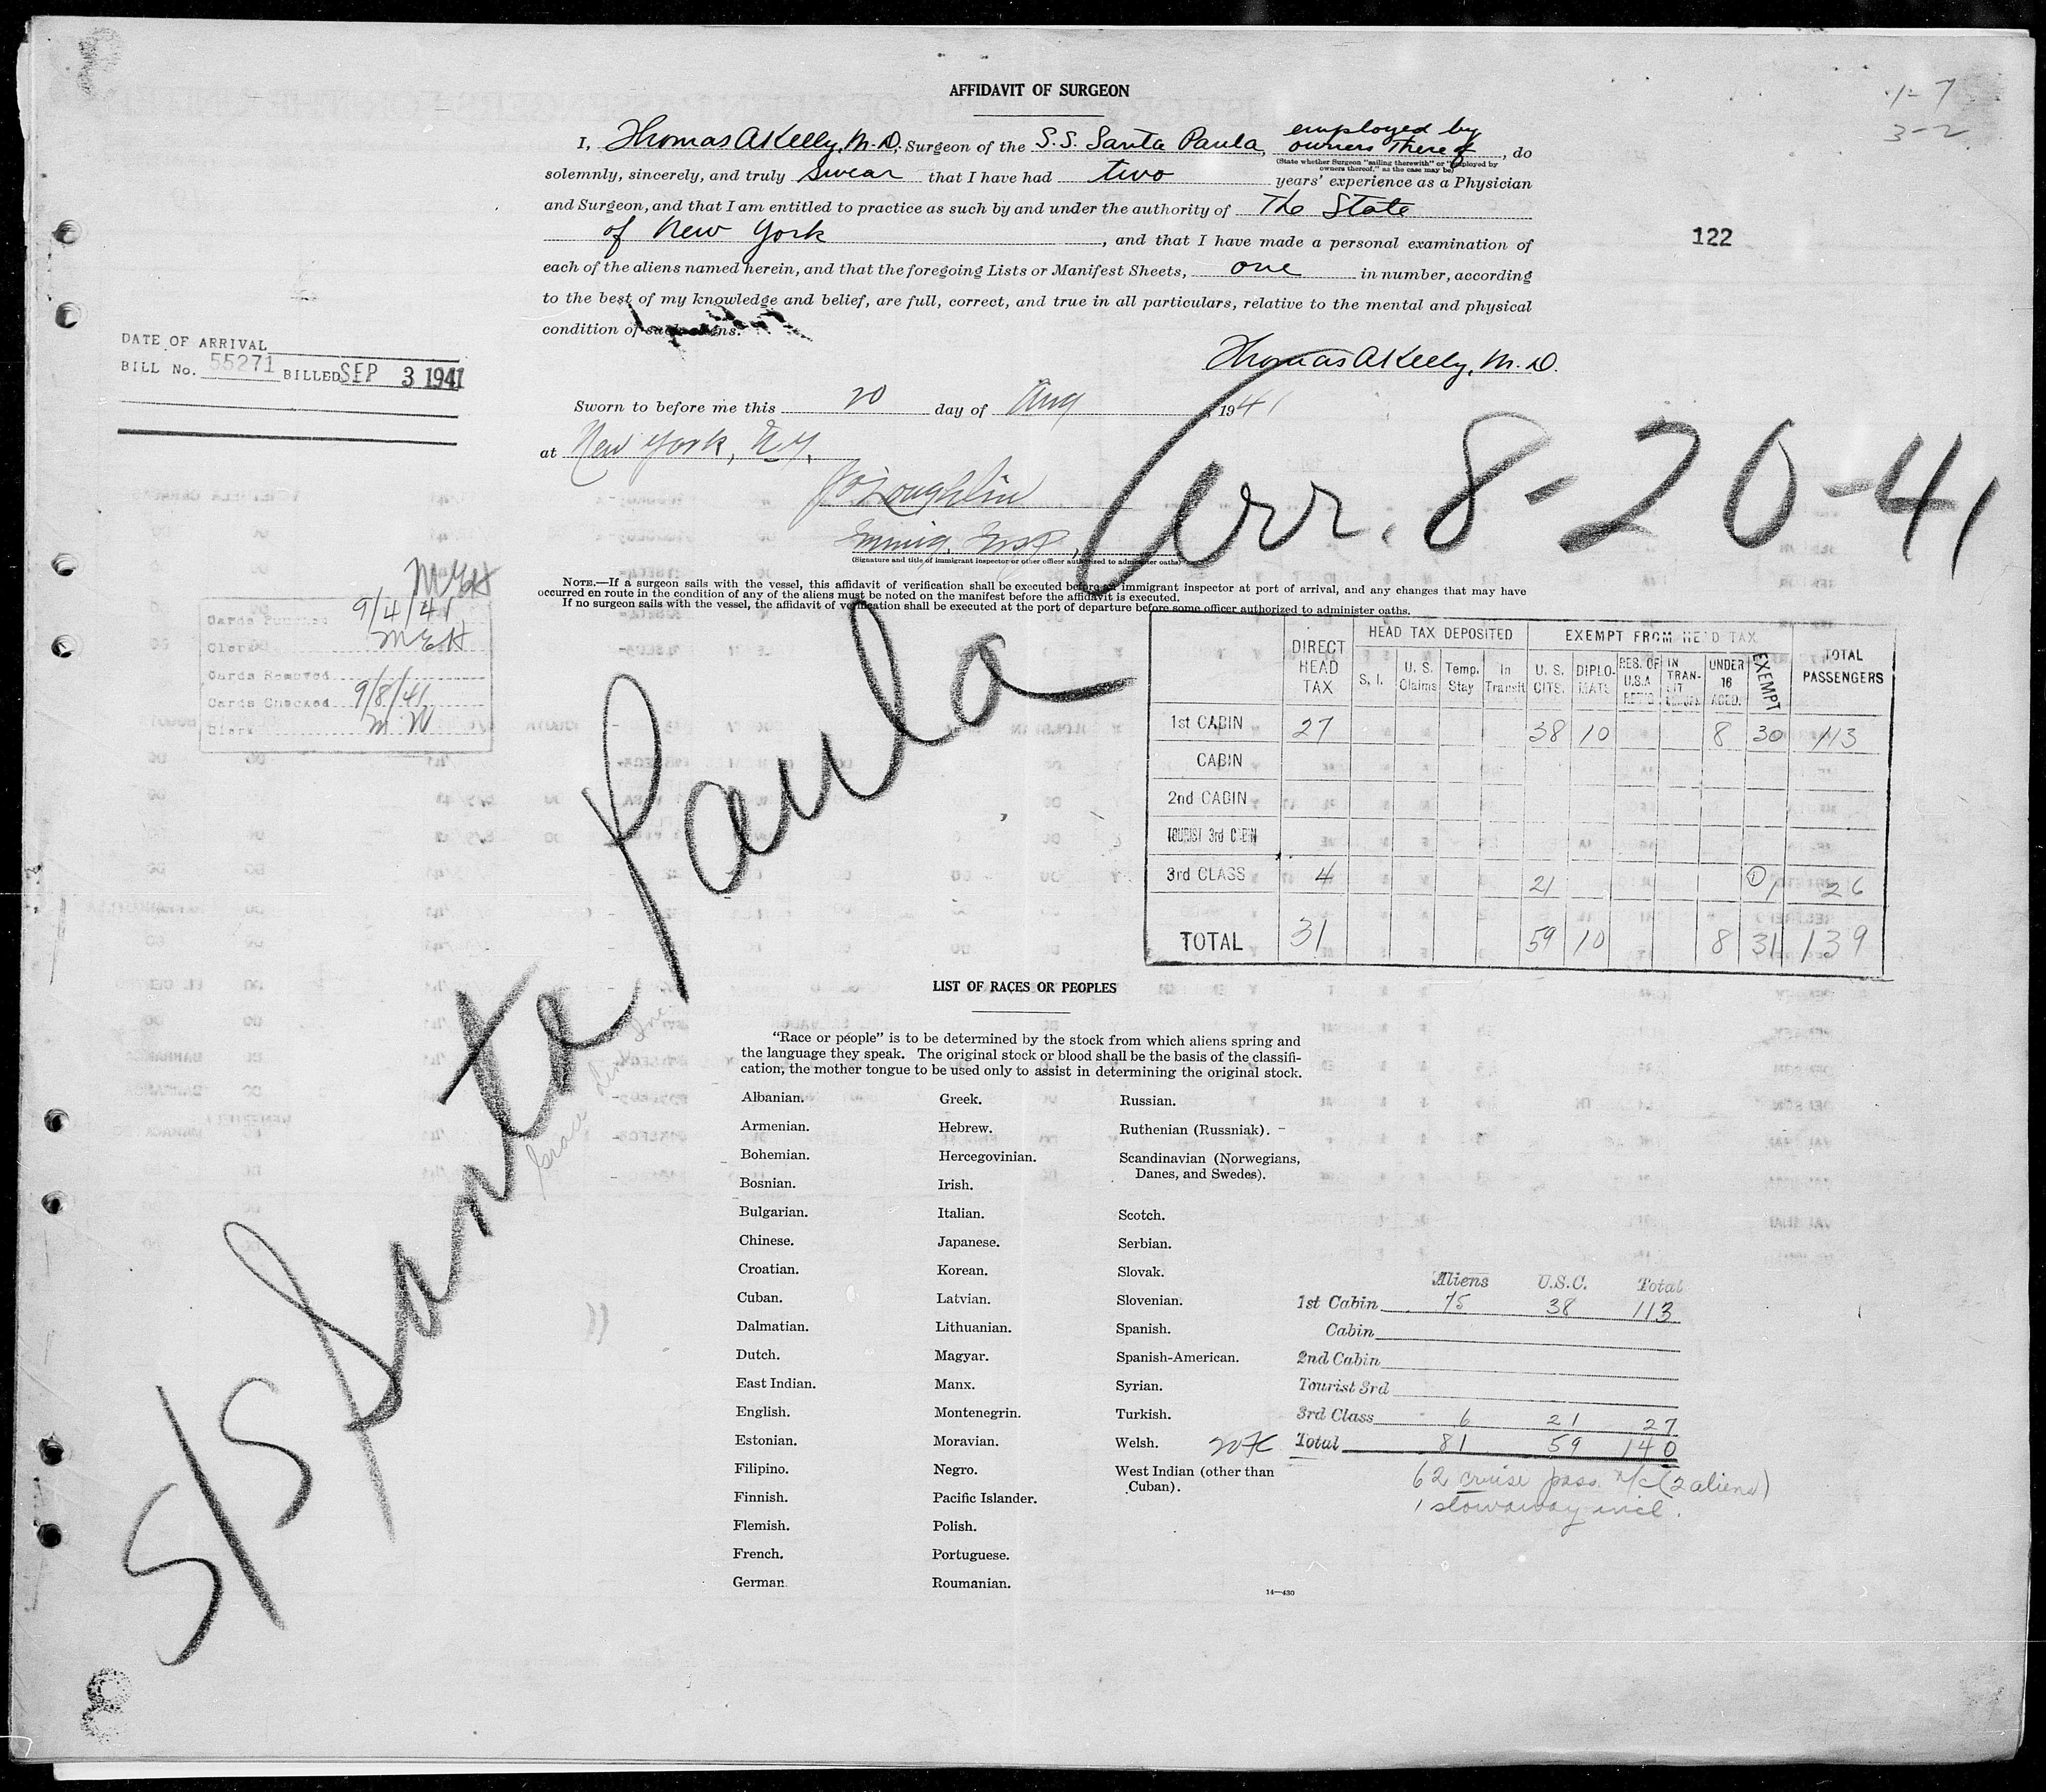 AFFIDAVIT OF SURGEON
1-7
3-2
I, Thomas A Kelly, M.D., Surgeon of the S.S. Santa Paula, employed by owners Thereof, do
(State whether Surgeon "sailing therewith" or "employed by owners thereof," as the case may be)
solemnly, sincerely, and truly swear that I have had two years' experience as a Physician
and Surgeon, and that I am entitled to practice as such by and under the authority of The State
of New York, and that I have made a personal examination of
122
each of the aliens named herein, and that the foregoing Lists or Manifest Sheets, one in number, according
to the best of my knowledge and belief, are full, correct, and true in all particulars, relative to the mental and physical
condition of such aliens.
DATE OF ARRIVAL
BILL No. 55271 BILLED SEP 3 1941
Thomas A Kelly, M.D.
Sworn to before me this 20 day of Aug, 1941
at New York, N.Y.
J O'Loughlin
Immig. Insp,
(Signature and title of immigrant inspector or other officer authorized to administer oaths)
Arr. 8-20-41
NOTE.—If a surgeon sails with the vessel, this affidavit of verification shall be executed before an immigrant inspector at port of arrival, and any changes that may have
occurred en route in the condition of any of the aliens must be noted on the manifest before the affidavit is executed.
If no surgeon sails with the vessel, the affidavit of verification shall be executed at the port of departure before some officer authorized to administer oaths.
MEH
Cards Punched 9/4/41
Clerk MEH
Cards Removed
Cards Checked 9/8/41
Clerk M.W
S/S Santa Paula
Grace Line Inc.
DIRECT HEAD TAX HEAD TAX DEPOSITED EXEMPT FROM HEAD TAX TOTAL PASSENGERS
S. I. U. S. Claims Temp. Stay In Transit U. S. CITS. DIPLOMATS RES. OF U.S.A RET'G IN TRANSIT UNDER 16 ACCD. EXEMPT
1st CABIN 27 38 10 8 30 113
CABIN
2nd CABIN
TOURIST 3rd CABIN
3rd CLASS 4 21 1 1 26
TOTAL 31 59 10 8 31 139
LIST OF RACES OR PEOPLES
"Race or people" is to be determined by the stock from which aliens spring and
the language they speak. The original stock or blood shall be the basis of the classifi-
cation, the mother tongue to be used only to assist in determining the original stock.
Albanian.
Armenian.
Bohemian.
Bosnian.
Bulgarian.
Chinese.
Croatian.
Cuban.
Dalmatian.
Dutch.
East Indian.
English.
Estonian.
Filipino.
Finnish.
Flemish.
French.
German
Greek.
Hebrew.
Hercegovinian.
Irish.
Italian.
Japanese.
Korean.
Latvian.
Lithuanian.
Magyar.
Manx.
Montenegrin.
Moravian.
Negro.
Pacific Islander.
Polish.
Portuguese.
Roumanian.
Russian.
Ruthenian (Russniak).
Scandinavian (Norwegians,
Danes, and Swedes).
Scotch.
Serbian.
Slovak.
Slovenian.
Spanish.
Spanish-American.
Syrian.
Turkish.
Welsh.
West Indian (other than
Cuban).
Aliens U.S.C. Total
1st Cabin 75 38 113
Cabin
2nd Cabin
Tourist 3rd
3rd Class 6 21 27
Total 81 59 140
62 cruise pass. n/c (2 aliens)
1 stowaway incl.
14—430